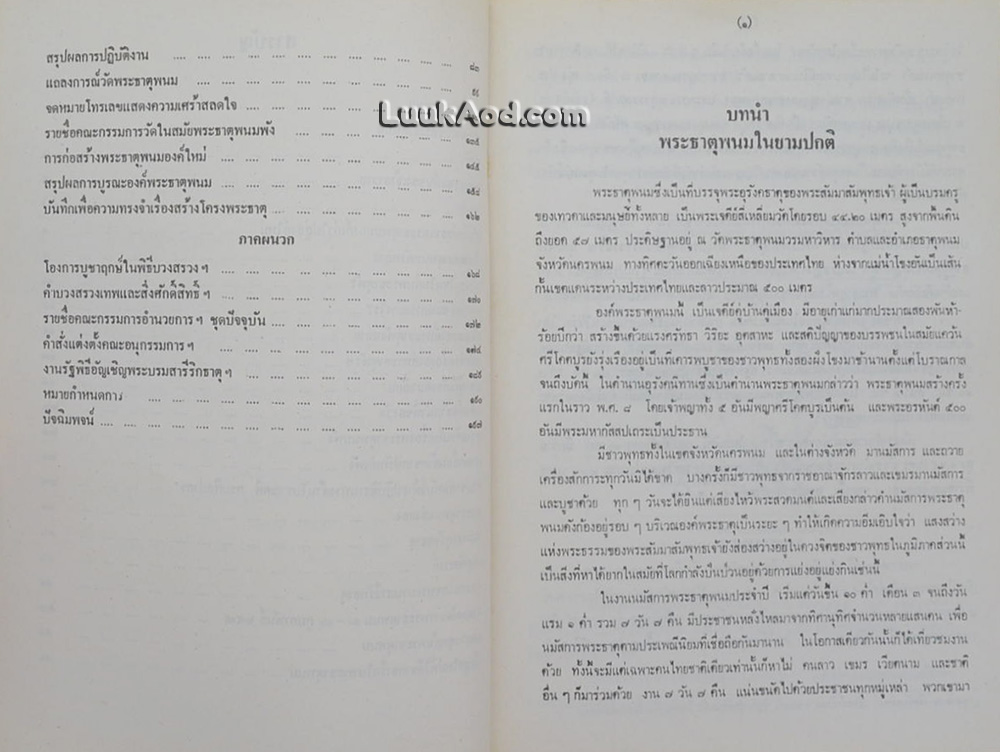 สรุปผลการปฏิบัติงาน .... .... .... .... .... .... .... .... .... ๘๓
แถลงการณ์วัดพระธาตุพนม .... .... .... .... .... .... .... ....
จดหมายโทรเลขแสดงความเศร้าสลดใจ .... .... ....
รายชื่อคณะกรรมการวัดในสมัยพระธาตุพนมพัง .... .... .... .... .... ๑๓๕
การก่อสร้างพระธาตุพนมองค์ใหม่ .... .... .... .... .... .... .... ๑๔๕
สรุปผลการบูรณะองค์พระธาตุพนม .... .... .... .... .... .... .... ๑๕๘
บันทึกเพื่อความทรงจำเรื่องสร้างโครงพระธาตุ .... .... .... .... .... .... ๑๖๒
ภาคผนวก
โองการบูชาฤกษ์ในพิธีบวงสรวง ฯ .... .... .... .... .... .... .... ๑๖๘
คำบวงสรวงเทพและสิ่งศักดิ์สิทธิ์ ฯ .... .... .... .... .... .... .... ๑๗๐
รายชื่อคณะกรรมการอำนวยการ ฯ ชุดปัจจุบัน .... .... .... .... .... ๑๗๒
คำสั่งแต่งตั้งคณะอนุกรรมการ ฯ .... .... .... .... .... .... .... ๑๗๔
งานรัฐพิธีอัญเชิญพระบรมสารีริกธาตุ ฯ .... .... .... .... .... .... ๑๘๖
หมายกำหนดการ .... .... .... .... .... .... .... .... .... ๑๙๐
ปัจฉิมพจน์ .... .... .... .... .... .... .... .... .... .... ๑๙๗
LuukAod.com
(๑)
บทนำ
พระธาตุพนมในยามปกติ
พระธาตุพนมซึ่งเป็นที่บรรจุพระอุรังคธาตุของพระสัมมาสัมพุทธเจ้า ผู้เป็นบรมครู
ของเทวดาและมนุษย์ทั้งหลาย เป็นพระเจดีย์สี่เหลี่ยมวัดโดยรอบ ๔๙.๒๐ เมตร สูงจากพื้นดิน
ถึงยอด ๕๗ เมตร ประดิษฐานอยู่ ณ วัดพระธาตุพนมวรมหาวิหาร ตำบลและอำเภอธาตุพนม
จังหวัดนครพนม ทางทิศตะวันออกเฉียงเหนือของประเทศไทย ห่างจากแม่น้ำโขงอันเป็นเส้น
กั้นเขตแดนระหว่างประเทศไทยและลาวประมาณ ๕๐๐ เมตร
องค์พระธาตุพนมนี้ เป็นเจดีย์คู่บ้านคู่เมือง มีอายุเก่าแก่มากประมาณสองพันห้า-
ร้อยปีกว่า สร้างขึ้นด้วยแรงศรัทธา วิริยะ อุตสาหะ และสติปัญญาของบรรพชนในสมัยแคว้น
ศรีโคตบูรยังรุ่งเรืองอยู่เป็นที่เคารพบูชาของชาวพุทธทั้งสองฝั่งโขงมาช้านานตั้งแต่โบราณกาล
จนถึงบัดนี้ ในตำนานอุรังคนิทานซึ่งเป็นตำนานพระธาตุพนมกล่าวว่า พระธาตุพนมสร้างครั้ง
แรกในราว พ.ศ. ๘ โดยเจ้าพญาทั้ง ๕ อันมีพญาศรีโคตบูรเป็นต้น และพระอรหันต์ ๕๐๐
อันมีพระมหากัสสปเถระเป็นประธาน
มีชาวพุทธทั้งในเขตจังหวัดนครพนม และในต่างจังหวัด มานมัสการ และถวาย
เครื่องสักการะทุกวันมิได้ขาด บางครั้งก็มีชาวพุทธจากราชอาณาจักรลาวและเขมรมานมัสการ
และบูชาด้วย ทุก ๆ วันจะได้ยินแต่เสียงไหว้พระสวดมนต์และเสียงกล่าวคำนมัสการพระธาตุ
พนมดังก้องอยู่รอบ ๆ บริเวณองค์พระธาตุเป็นระยะ ๆ ทำให้เกิดความอิ่มเอิบใจว่า แสงสว่าง
แห่งพระธรรมของพระสัมมาสัมพุทธเจ้ายังส่องสว่างอยู่ในดวงจิตของชาวพุทธในภูมิภาคส่วนนี้
เป็นสิ่งที่หาได้ยากในสมัยที่โลกกำลังปั่นป่วนอยู่ด้วยการแย่งอยู่แย่งกินเช่นนี้
ในงานนมัสการพระธาตุพนมประจำปี เริ่มแต่วันขึ้น ๑๐ ค่ำ เดือน ๓ จนถึงวัน
แรม ๑ ค่ำ รวม ๗ วัน ๗ คืน มีประชาชนหลั่งไหลมาจากทิศานุทิศจำนวนหลายแสนคน เพื่อ
นมัสการพระธาตุตามประเพณีนิยมที่เชื่อถือกันมานาน ในโอกาสเดียวกันนั้นก็ได้เที่ยวชมงาน
ด้วย ทั้งนี้จะมีแต่เฉพาะคนไทยชาติเดียวเท่านั้นก็หาไม่ คนลาว เขมร เวียดนาม และชาติ
อื่น ๆ ก็มาร่วมด้วย งาน ๗ วัน ๗ คืน แน่นขนัดไปด้วยประชาชนทุกหมู่เหล่า พวกเขามา